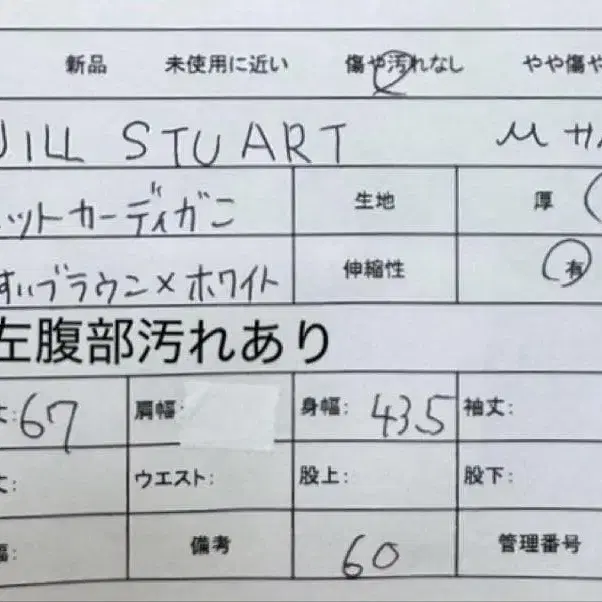 新品 未使用に近い 傷や汚れなし やや傷や
JILL STUART Mサ
ニットカーディガン 生地 厚
うすいブラウン×ホワイト 伸縮性 有
左腹部汚れあり
丈:67 肩幅: 身幅: 43.5 袖丈:
丈: ウエスト: 股上: 股下:
幅: 備考 60 管理番号